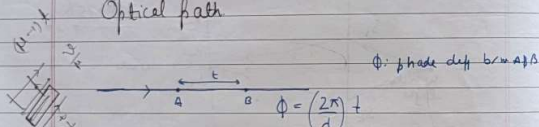 Optical path
(μ-1) t
t
φ: phade diff b/w A & B
A
B
φ = (2π/d) t